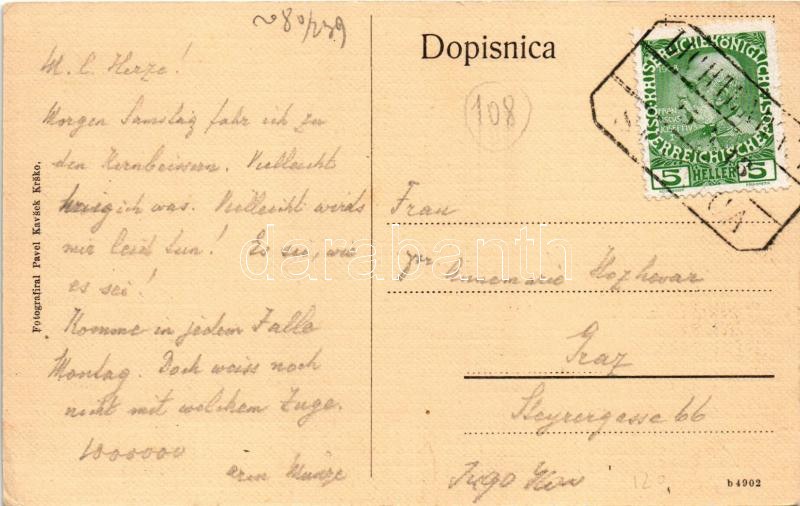 Dopisnica
M. l. Herze!
Morgen Samstag fahr ich zu
den Kernbeissern. Vielleicht
krieg ich was. Vielleicht wirds
mir leid tun! Es sei, wie
es sei!
Komme in jedem Falle
Montag. Doch weiss noch
nicht mit welchem Zuge.
1000000
Fotografiral Pavel Kavšek Krško.
108
KAISERLICHE KÖNIGLICHE
ÖSTERREICHISCHE POST
5 HELLER 5
Frau
Graz
Steyrergasse 66
120
b 4902
darabanth